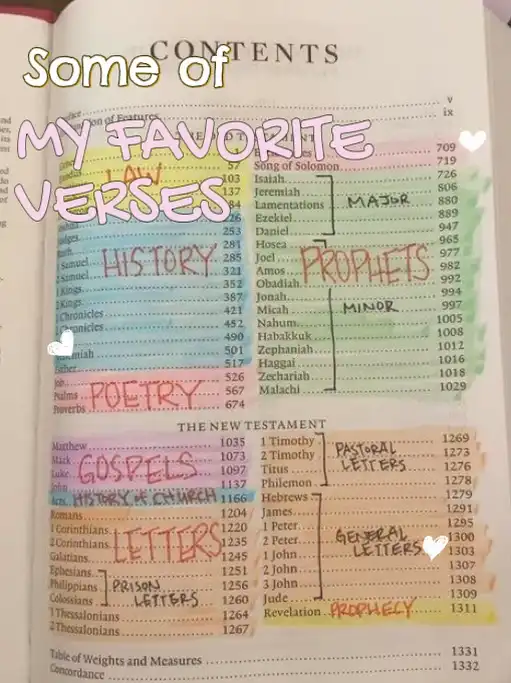 CONTENTS
Some of
MY FAVORITE
VERSES
of Features
v
ix
709
Song of Solomon 719
Isaiah 726
Jeremiah 806
Lamentations 880
Ezekiel 889
Daniel 947
MAJOR
Hosea 965
Joel 977
Amos 982
Obadiah 992
Jonah 994
Micah 997
Nahum 1005
Habakkuk 1008
Zephaniah 1012
Haggai 1016
Zechariah 1018
Malachi 1029
PROPHETS
MINOR
57
103
137
LAW
253
281
1 Samuel 285
2 Samuel 321
1 Kings 352
2 Kings 387
1 Chronicles 421
Chronicles 452
490
501
Esther 517
HISTORY
Job 526
Psalms 567
Proverbs 674
POETRY
THE NEW TESTAMENT
Matthew 1035
Mark 1073
Luke 1097
John 1137
GOSPELS
Acts HISTORY of CHURCH 1166
Romans 1204
1 Corinthians 1220
2 Corinthians 1235
Galatians 1245
LETTERS
Ephesians 1251
Philippians 1256
Colossians 1260
PRISON
LETTERS
1 Thessalonians 1264
2 Thessalonians 1267
1 Timothy 1269
2 Timothy 1273
Titus 1276
Philemon 1278
PASTORAL
LETTERS
Hebrews 1279
James 1291
1 Peter 1295
2 Peter 1300
1 John 1303
2 John 1307
3 John 1308
Jude 1309
GENERAL
LETTERS
Revelation PROPHECY 1311
Table of Weights and Measures 1331
Concordance 1332